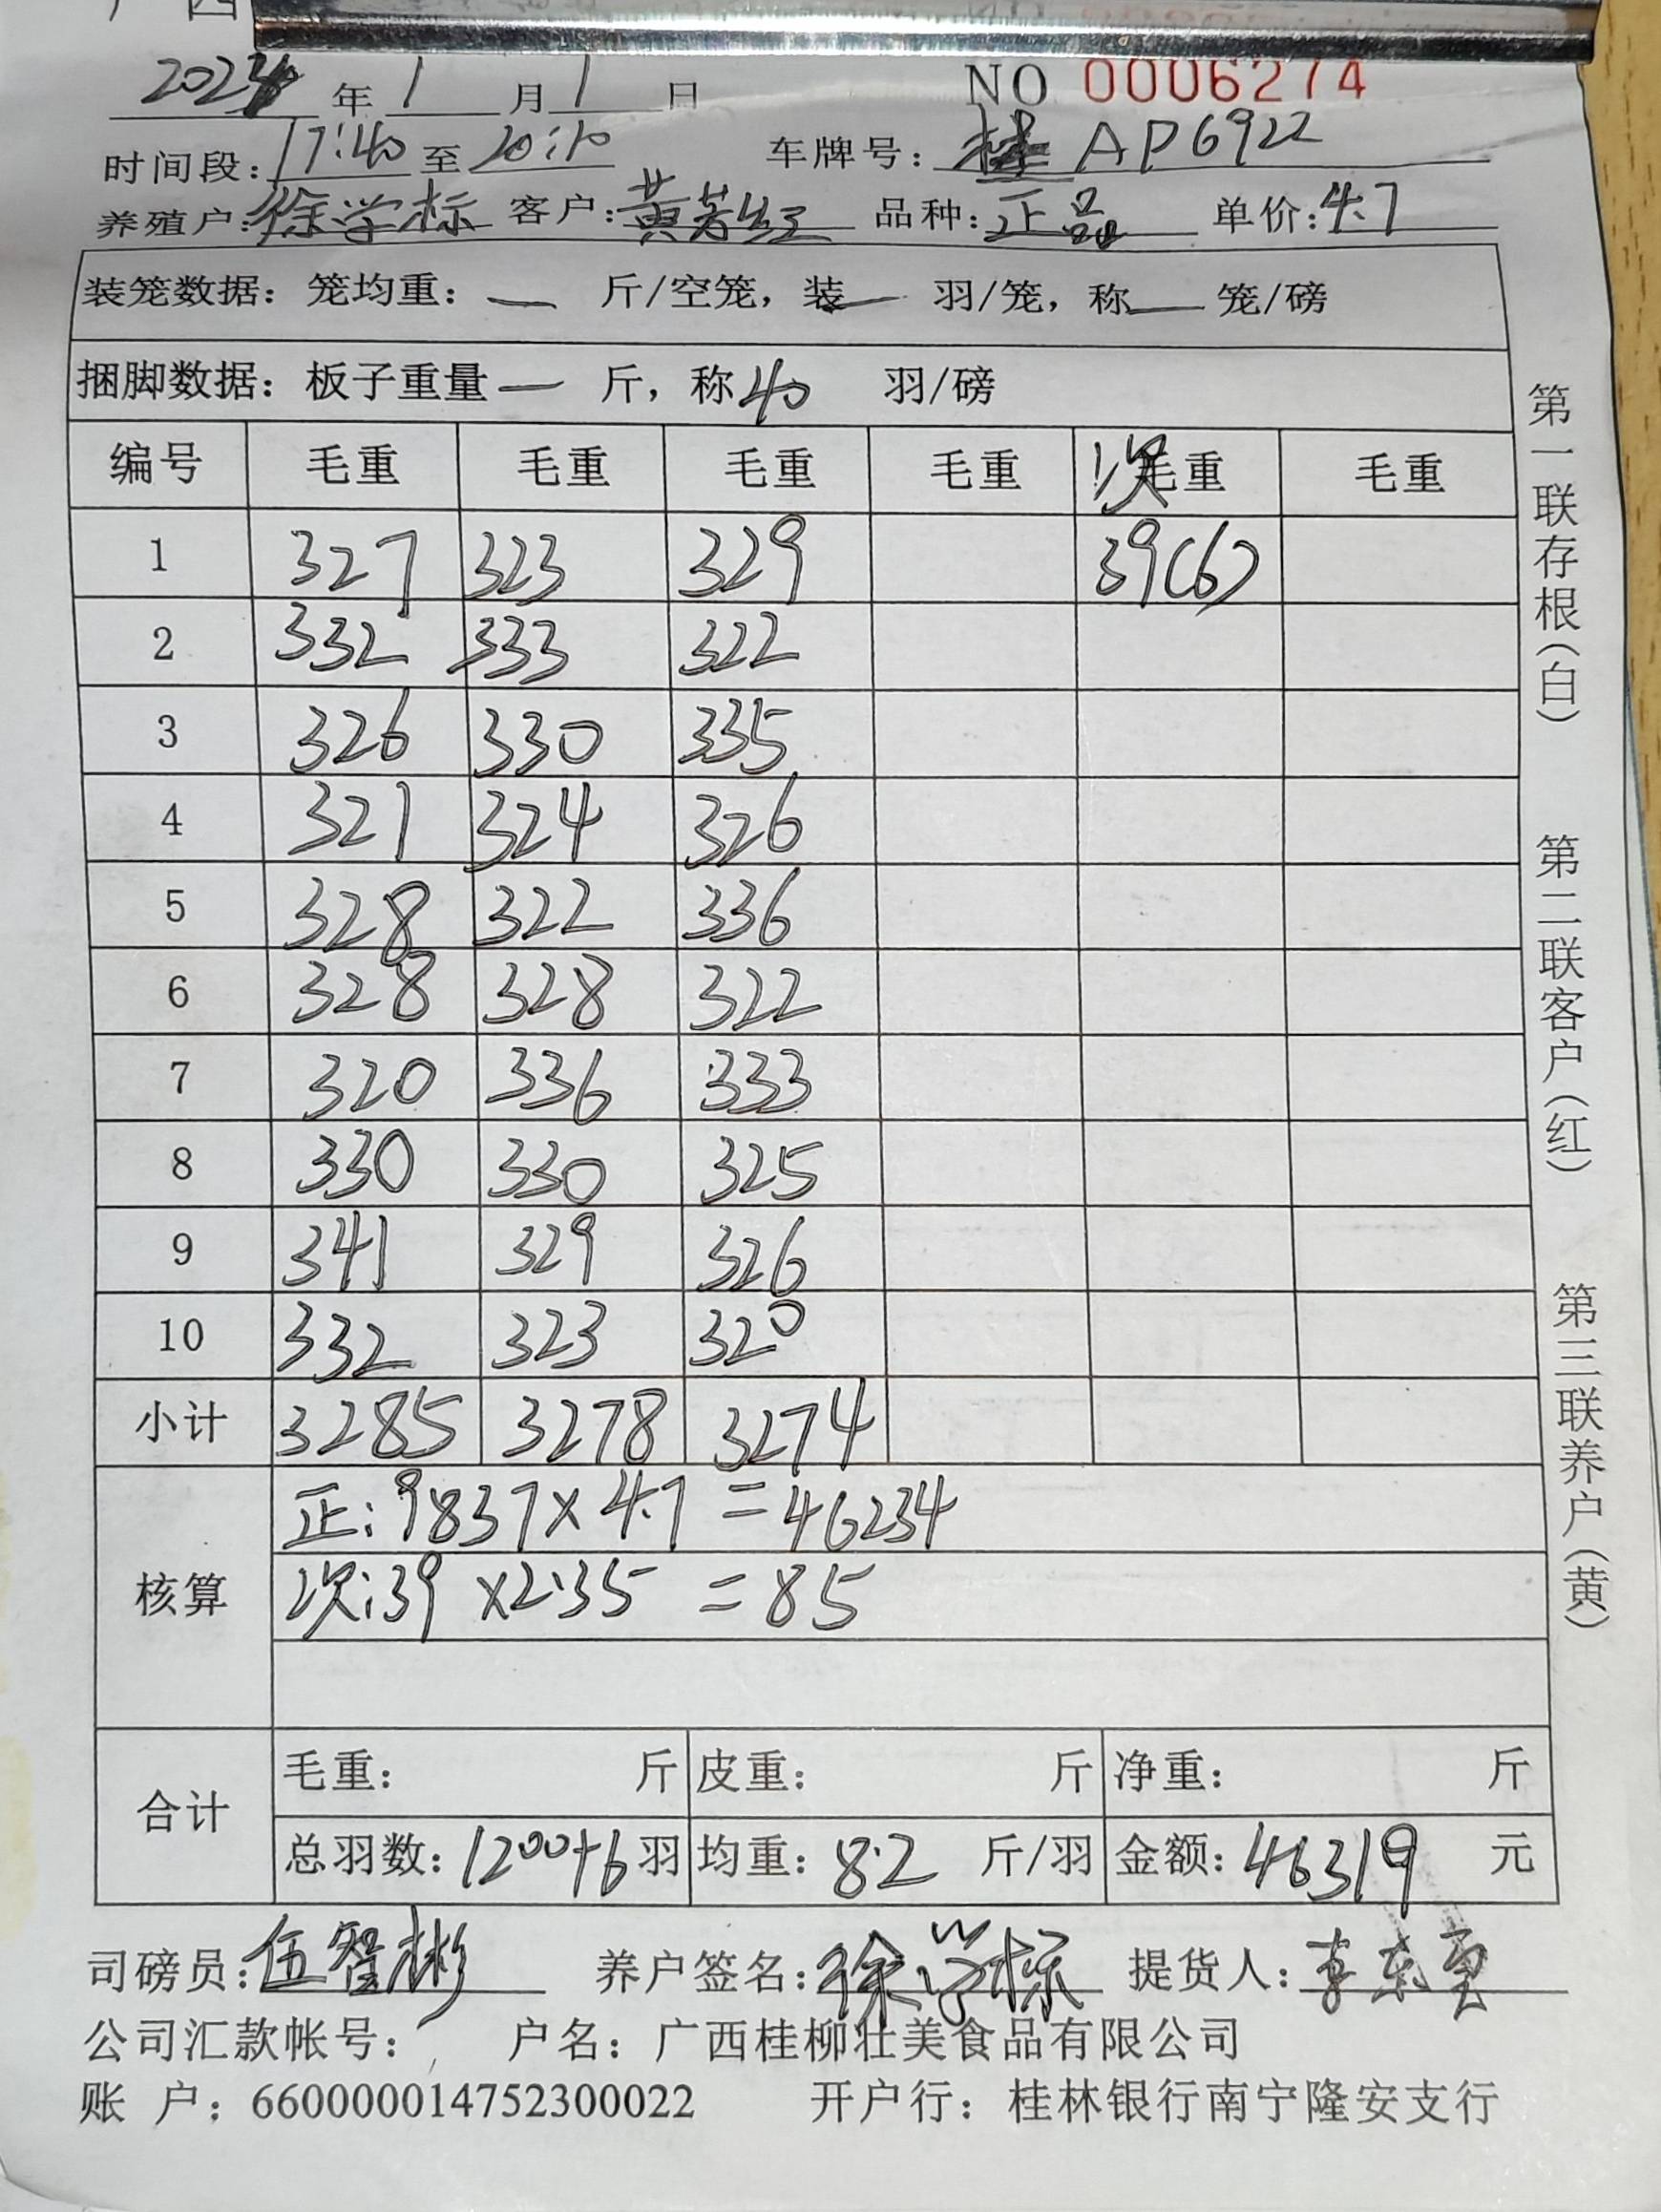 2024年1月1日 NO 0006274
时间段:17:40至20:10 车牌号:桂AP6922
养殖户:徐学标 客户:黄芳红 品种:正品 单价:4.7
装笼数据:笼均重:— 斤/空笼,装— 羽/笼,称— 笼/磅
捆脚数据:板子重量— 斤,称40 羽/磅
编号 毛重 毛重 毛重 毛重 次毛重 毛重
1 327 323 329 39(6)
2 332 333 322
3 326 330 335
4 321 324 326
5 328 322 336
6 328 328 322
7 320 336 333
8 330 330 325
9 341 329 326
10 332 323 320
小计 3285 3278 3274
核算
正:9837×4.7=46234
次:39×2.35=85
合计
毛重: 斤 皮重: 斤 净重: 斤
总羽数:1200+6羽 均重:8.2 斤/羽 金额:46319 元
司磅员:伍智彬 养户签名:徐学标 提货人:李
公司汇款帐号: 户名:广西桂柳壮美食品有限公司
账 户:660000014752300022 开户行:桂林银行南宁隆安支行
第一联存根(白)
第二联客户(红)
第三联养户(黄)